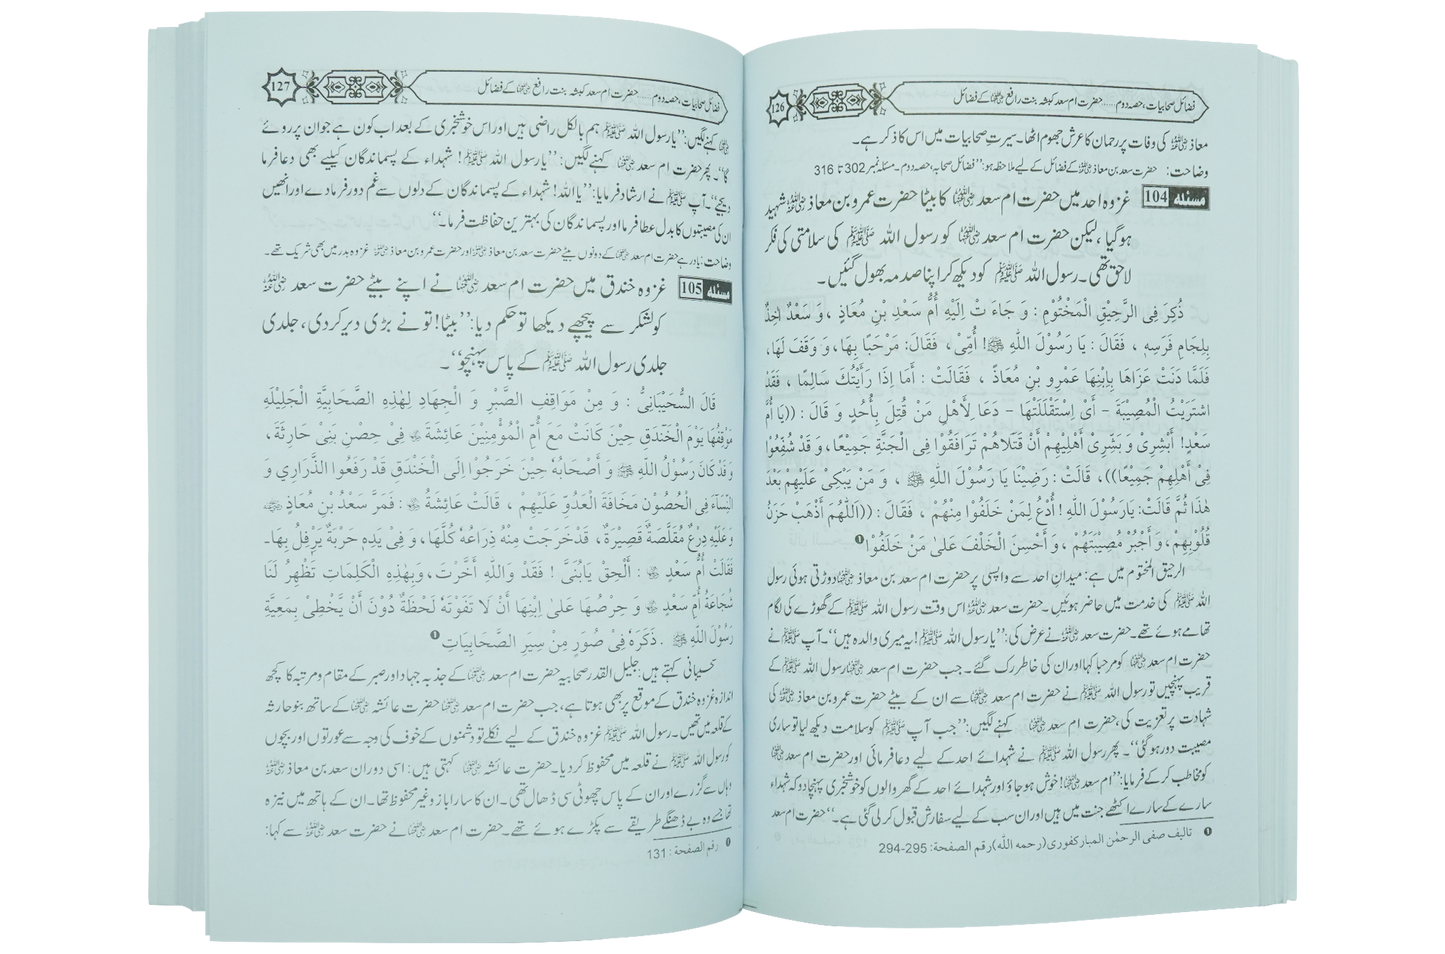 126
فضائل صحابیات، حصہ دوم ..... حضرت ام سعد کبشہ بنت رافع ؓ کے فضائل
معاذ ؓ کی وفات پر رحمان کا عرش جھوم اٹھا۔ سیرتِ صحابیات میں اس کا ذکر ہے۔
وضاحت: حضرت سعد بن معاذ ؓ کے فضائل کے لیے ملاحظہ ہو: ’’فضائل صحابہ، حصہ دوم۔ مسئلہ نمبر 302 تا 316
مسئلہ 104 غزوہ احد میں حضرت ام سعد ؓ کا بیٹا حضرت عمرو بن معاذ ؓ شہید
ہو گیا، لیکن حضرت ام سعد ؓ کو رسول اللہ ﷺ کی سلامتی کی فکر
لاحق تھی۔ رسول اللہ ﷺ کو دیکھ کر اپنا صدمہ بھول گئیں۔
ذُكِرَ فِى الرَّحِيْقِ الْمَخْتُوْمِ : وَ جَاءَ تْ اِلَيْهِ أُمُّ سَعْدِ بْنِ مُعَاذٍ ، وَ سَعْدٌ اٰخِذٌ
بِلِجَامِ فَرَسِهٖ ، فَقَالَ : يَا رَسُوْلَ اللّٰهِ ﷺ! أُمِّىْ، فَقَالَ: مَرْحَبًا بِهَا، وَ وَقَفَ لَهَا،
فَلَمَّا دَنَتْ عَزَاهَا بِاِبْنِهَا عَمْرِو بْنِ مُعَاذٍ ، فَقَالَتْ : أَمَا اِذَا رَأَيْتُكَ سَالِمًا ، فَقَدْ
اشْتَرَيْتُ الْمُصِيْبَةَ - أَىْ اِسْتَقْلَلَتْهَا - دَعَا لِاَهْلِ مَنْ قُتِلَ بِأُحُدٍ وَ قَالَ : ((يَا أُمَّ
سَعْدٍ! أَبْشِرِىْ وَ بَشِّرِى أَهْلِيْهِمْ أَنْ قَتْلَاهُمْ تَرَافَقُوْا فِى الْجَنَّةِ جَمِيْعًا، وَ قَدْ شُفِّعُوْا
فِىْ أَهْلِهِمْ جَمِيْعًا))، قَالَتْ : رَضِيْنَا يَا رَسُوْلَ اللّٰهِ ﷺ ، وَ مَنْ يَبْكِىْ عَلَيْهِمْ بَعْدَ
هٰذَا ثُمَّ قَالَتْ: يَارَسُوْلَ اللّٰهِ ! اُدْعُ لِمَنْ خَلَفُوْا مِنْهُمْ ، فَقَالَ : ((اَللّٰهُمَّ أَذْهَبْ حَزَنَ
قُلُوْبِهِمْ، وَ أَجْبُرْ مُصِيْبَتَهُمْ ، وَ أَحْسِنِ الْخَلْفَ عَلىٰ مَنْ خَلَفُوْا❶
الرحیق المختوم میں ہے: میدانِ احد سے واپسی پر حضرت ام سعد بن معاذ ؓ دوڑتی ہوئی رسول
اللہ ﷺ کی خدمت میں حاضر ہوئیں۔ حضرت سعد ؓ اس وقت رسول اللہ ﷺ کے گھوڑے کی لگام
تھامے ہوئے تھے۔ حضرت سعد ؓ نے عرض کی: ’’یا رسول اللہ ﷺ! یہ میری والدہ ہیں‘‘۔ آپ ﷺ نے
حضرت ام سعد ؓ کو مرحبا کہا اور ان کی خاطر رک گئے۔ جب حضرت ام سعد ؓ رسول اللہ ﷺ کے
قریب پہنچیں تو رسول اللہ ﷺ نے حضرت ام سعد ؓ سے ان کے بیٹے حضرت عمرو بن معاذ ؓ کی
شہادت پر تعزیت کی، حضرت ام سعد ؓ کہنے لگیں: ’’جب آپ ﷺ کو سلامت دیکھ لیا تو ساری
مصیبت دور ہو گئی‘‘۔ پھر رسول اللہ ﷺ نے شہدائے احد کے لیے دعا فرمائی اور حضرت ام سعد ؓ
کو مخاطب کر کے فرمایا: ’’ام سعد ؓ! خوش ہو جاؤ اور شہدائے احد کے گھر والوں کو خوشخبری پہنچا دو کہ شہداء
سارے کے سارے اکٹھے جنت میں ہیں اور ان سب کے لیے سفارش قبول کر لی گئی ہے۔‘‘ حضرت ام سعد
❶ تالیف صفی الرحمٰن المبارکفوری (رحمہ اللہ) رقم الصفحة: 295-294
127
فضائل صحابیات، حصہ دوم ..... حضرت ام سعد کبشہ بنت رافع ؓ کے فضائل
ؓ کہنے لگیں: ’’یا رسول اللہ ﷺ ہم بالکل راضی ہیں اور اس خوشخبری کے بعد اب کون ہے جو ان پر روئے
گا‘‘۔ پھر حضرت ام سعد ؓ کہنے لگیں: ’’یا رسول اللہ ﷺ! شہداء کے پسماندگان کیلیے بھی دعا فرما
دیجیے‘‘۔ آپ ﷺ نے ارشاد فرمایا: ’’یا اللہ! شہداء کے پسماندگان کے دلوں سے غم دور فرما دے اور انھیں
ان کی مصیبتوں کا بدل عطا فرما اور پسماندگان کی بہترین حفاظت فرما۔‘‘
وضاحت: یاد رہے حضرت ام سعد ؓ کے دونوں بیٹے حضرت سعد بن معاذ ؓ اور حضرت عمرو بن معاذ ؓ غزوہ بدر میں بھی شریک تھے۔
مسئلہ 105 غزوہ خندق میں حضرت ام سعد ؓ نے اپنے بیٹے حضرت سعد ؓ
کو لشکر سے پیچھے دیکھا تو حکم دیا: ’’بیٹا! تو نے بڑی دیر کر دی، جلدی
جلدی رسول اللہ ﷺ کے پاس پہنچو‘‘۔
قَالَ السُّحَيْبَانِىُّ : وَ مِنْ مَوَاقِفِ الصَّبْرِ وَ الْجِهَادِ لِهٰذِهِ الصَّحَابِيَّةِ الْجَلِيْلَةِ
مَوْقِفُهَا يَوْمَ الْخَنْدَقِ حِيْنَ كَانَتْ مَعَ أُمِّ الْمُؤْمِنِيْنَ عَائِشَةَ ؓ فِىْ حِصْنِ بَنِىْ حَارِثَةَ،
وَ قَدْ كَانَ رَسُوْلُ اللّٰهِ ﷺ وَ أَصْحَابُهٗ حِيْنَ خَرَجُوْا اِلَى الْخَنْدَقِ قَدْ رَفَعُوا الذَّرَارِي وَ
النِّسَآءَ فِى الْحُصُوْنِ مَخَافَةَ الْعَدُوِّ عَلَيْهِمْ ، قَالَتْ عَائِشَةُ ؓ : فَمَرَّ سَعْدُ بْنُ مُعَاذٍ ؓ
وَ عَلَيْهِ دِرْعٌ مُقَلَّصَةٌ قَصِيْرَةٌ، قَدْ خَرَجَتْ مِنْهُ ذِرَاعُهٗ كُلُّهَا، وَ فِىْ يَدِهٖ حَرْبَةٌ يَرْفِلُ بِهَا۔
فَقَالَتْ أُمُّ سَعْدٍ ؓ : أَلْحِقْ يَابُنَىَّ ! فَقَدْ وَاللّٰهِ أَخَّرَتْ، وَ بِهٰذِهِ الْكَلِمَاتِ تَظْهَرُ لَنَا
شُجَاعَةُ أُمِّ سَعْدٍ ؓ وَ حِرْصُهَا عَلىٰ اِبْنِهَا أَنْ لَا تَفُوْتَهٗ لَحْظَةٌ دُوْنَ أَنْ يَّحْظِىْ بِمَعِيَّةِ
رَسُوْلِ اللّٰهِ ﷺ . ذَكَرَهٗ فِىْ صُوَرٍ مِنْ سِيَرِ الصَّحَابِيَاتِ❶
سحیبانی کہتے ہیں: جلیل القدر صحابیہ حضرت ام سعد ؓ کے جذبہ جہاد اور صبر کے مقام و مرتبہ کا کچھ
اندازہ غزوہ خندق کے موقع پر بھی ہوتا ہے، جب حضرت ام سعد ؓ حضرت عائشہ ؓ کے ساتھ بنو حارثہ
کے قلعہ میں تھیں۔ رسول اللہ ﷺ غزوہ خندق کے لیے نکلے تو دشمنوں کے خوف کی وجہ سے عورتوں اور بچوں
کو رسول اللہ ﷺ نے قلعہ میں محفوظ کر دیا۔ حضرت عائشہ ؓ کہتی ہیں: اسی دوران سعد بن معاذ ؓ
وہاں سے گزرے اور ان کے پاس چھوٹی سی ڈھال تھی۔ ان کا سارا بازو غیر محفوظ تھا۔ ان کے ہاتھ میں نیزہ
تھا جسے وہ بے ڈھنگے طریقے سے پکڑے ہوئے تھے۔ حضرت ام سعد ؓ نے حضرت سعد ؓ سے کہا:
❶ رقم الصفحة : 131